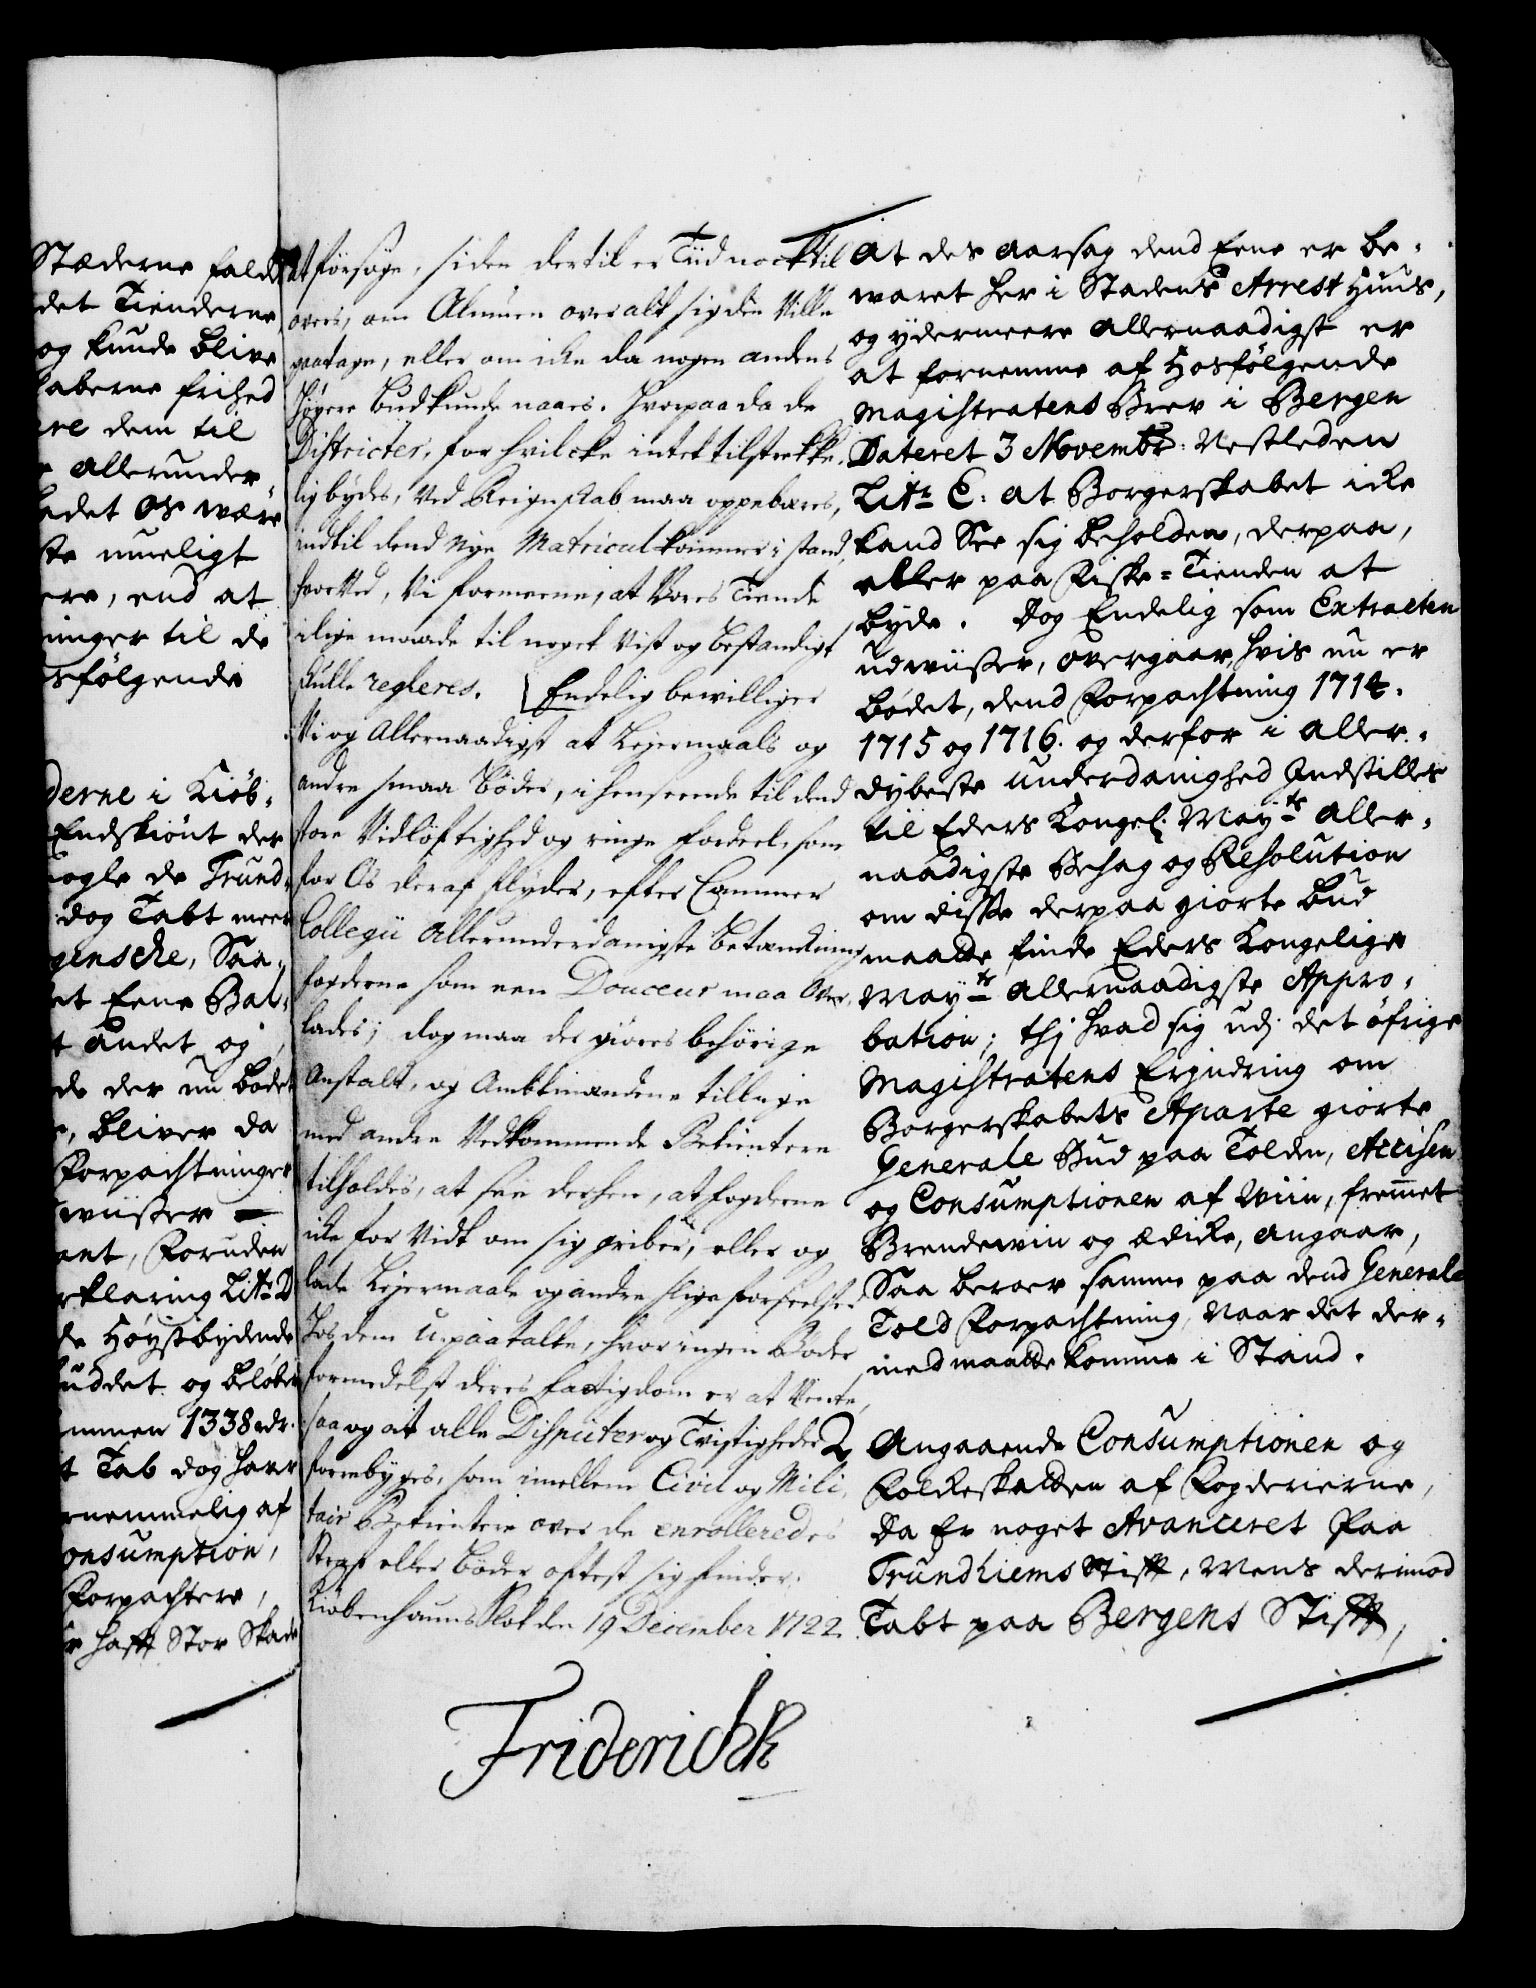 Stæderne fald
det Tienderne
og kunde blive
laberne frihed
re dem til
allerunder-
ladet os være
ste mueligt
ere, end at
ninger til de
sfølgende
derne i Kiøb-
Endskiønt der
nogle de Trund-
dog Tabt meer
gensche, Saa-
et Eene Bal-
t andet og
de der nu bødet
e, bliver da
Forpachtninger
wiißer —
ant, Foruden
rklaring Litr D
de Høystbydende
buddet og beløber
mmen 1338 rdr.
t Tab dog harr
rnemmelig af
onsumption,
Forpachtere,
r hafft Stor Skade
at forsøge, siden dertil er Tiid nock til
overs, om Almuen over alt sig den Ville
paatage, eller om icke da nogen andens
høyere bud kunde naaes. Hvorpaa da de
Districter, for hvilcke intet tilstrække-
lig bydes, Ved Reigenskab maa oppebæres,
indtil dend nye Matricul kommer i stand,
hvorved, Vi formeene, at Vores Tiende
i lige maade til noget Vist og bestandigt
skulle regleres. Endelig bewilliger
Vi og Allernaadigst at Leyermaals og
andre smaa bøder, i henseende til dend
store Vidløftighed og ringe fordeel, som
for Os deraf flyder, efter Cammer
Collegii Allerunderdanigste betænckning
fogderne som een Douceur maa Over-
lades; dog maa der giøres behørige
Anstalt, og Ambtmændene tillige
med andre Vedkommende Betientere
tilholdes, at see derhen, at fogderne
icke for Vidt om sig griber, eller og
lade Leyermaale og andre slige forseelser
hos dem u-paatalte, hvor ingen Bøder
formedelst deres fattigdom er at Vente,
saa og at alle Disputer og Tvistigheder
forrebyges, som imellem Civil og Mili-
tair Betientere over de enrolleredes
Straf eller bøder oftest sig finder.
Kiøbenhauns Slot den 19 December 1722.
Friderich R
at der aarsag dend Eene er be-
waret her i Stadens Arrest Huus,
og ydermeere allernaadigst er
at fornemme af Hosfølgende
Magistratens Brev i Bergen
Dateret 3 Novembr: Nestleden
Litr: C: at Borgerskabet icke
kand See sig beholden, derpaa,
eller paa Fiske-Tienden at
byde. Dog Endelig som Extracten
udwiißer, overgaar, hvis nu er
bødet, dend Forpachtning 1714.
1715 og 1716. og derfor i aller-
dybeste underdanighed Indstilles
til Eders Kongel: Mayts aller-
naadigste Behag og Resolution
om disse derpaa giorte bud
maatte finde Eders Kongelige
Mayts allernaadigste Appro-
bation; thj hvad sig udj det øfrige
Magistratens Erindring om
Borgerskabets Aparte giorte
Generale Bud paa Tolden, Accisen
og Consumptionen af Wiin, fremmet
Brendewin og ædicke, angaar,
Saa beroer samme paa dend Generale
Told Forpachtning, naar det der-
med maatte komme i Stand.
2 Angaaende Consumptionen og
Folckeskatten af Fogderierne,
da Er noget Avanceret Paa
Trundhiems Stifft, Mens derimod
Tabt paa Bergens Stifft,